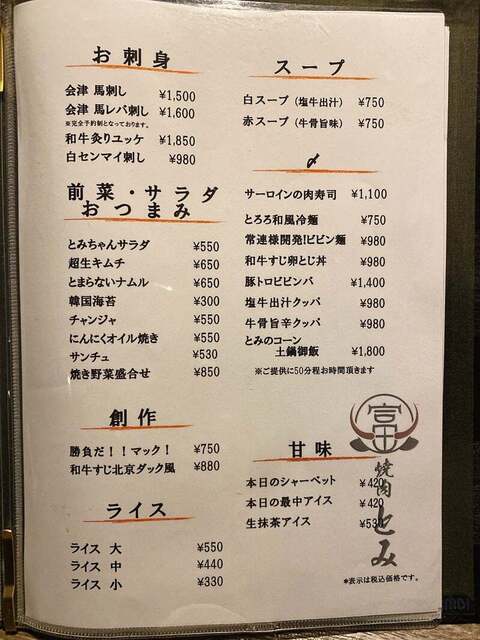 お刺身
会津 馬刺し ¥1,500
会津 馬レバ刺し ¥1,600
※完全予約制となっております。
和牛炙りユッケ ¥1,850
白センマイ刺し ¥980
前菜・サラダ
おつまみ
とみちゃんサラダ ¥550
超生キムチ ¥650
とまらないナムル ¥650
韓国海苔 ¥300
チャンジャ ¥550
にんにくオイル焼き ¥550
サンチュ ¥530
焼き野菜盛合せ ¥850
創作
勝負だ!!マック! ¥750
和牛すじ北京ダック風 ¥880
ライス
ライス 大 ¥550
ライス 中 ¥440
ライス 小 ¥330
スープ
白スープ(塩牛出汁) ¥750
赤スープ(牛骨旨味) ¥750
〆
サーロインの肉寿司 ¥1,100
とろろ和風冷麺 ¥750
常連様開発!ビビン麺 ¥980
和牛すじ卵とじ丼 ¥980
豚トロビビンバ ¥1,400
塩牛出汁クッパ ¥980
牛骨旨辛クッパ ¥980
とみのコーン
土鍋御飯 ¥1,800
※ご提供に50分程お時間頂きます
甘味
本日のシャーベット ¥420
本日の最中アイス ¥420
生抹茶アイス ¥530
富
焼肉とみ
*表示は税込価格です。